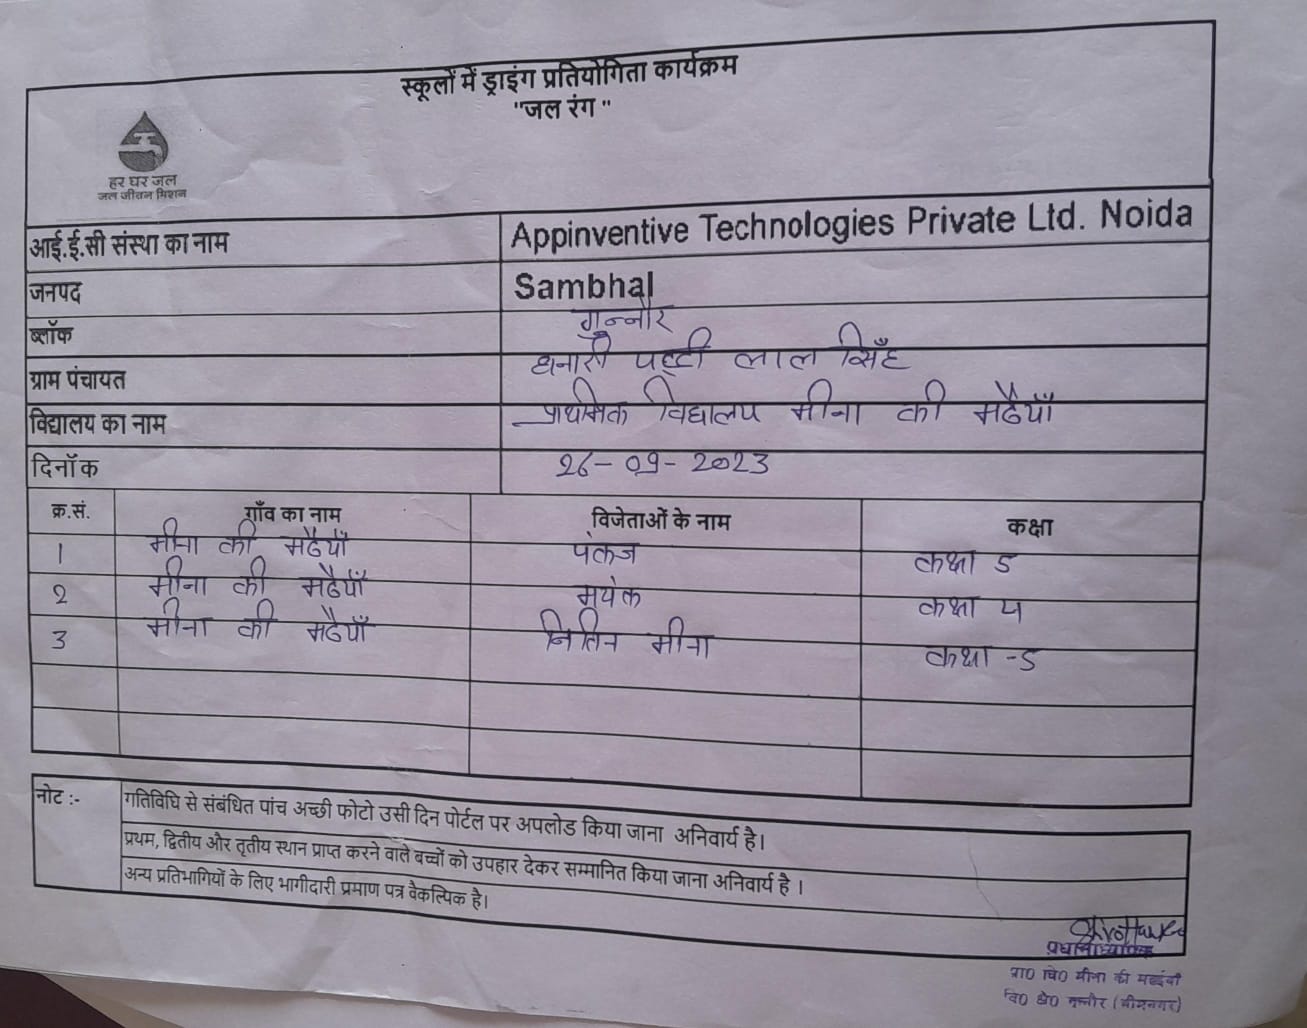 स्कूलों में ड्राइंग प्रतियोगिता कार्यक्रम
"जल रंग "
हर घर जल
जल जीवन मिशन
आई.ई.सी संस्था का नाम Appinventive Technologies Private Ltd. Noida
जनपद Sambhal
ब्लॉक गुन्नौर
ग्राम पंचायत धनारी पट्टी लाल सिँह
विद्यालय का नाम प्राथमिक विद्यालय मीना की मढैयाँ
दिनॉक 26-09-2023
क्र.सं. गाँव का नाम विजेताओं के नाम कक्षा
1 मीना की मढैयाँ पंकज कक्षा 5
2 मीना की मढैयाँ मयंक कक्षा 4
3 मीना की मढैयाँ नितिन मीना कक्षा -5
नोट :- गतिविधि से संबंधित पांच अच्छी फोटो उसी दिन पोर्टल पर अपलोड किया जाना अनिवार्य है।
प्रथम, द्वितीय और तृतीय स्थान प्राप्त करने वाले बच्चों को उपहार देकर सम्मानित किया जाना अनिवार्य है ।
अन्य प्रतिभागियों के लिए भागीदारी प्रमाण पत्र वैकल्पिक है।
प्रधानाध्यापक
प्रा0 वि0 मीना की
वि0 क्षे0 गुन्नौर (भीमनगर)